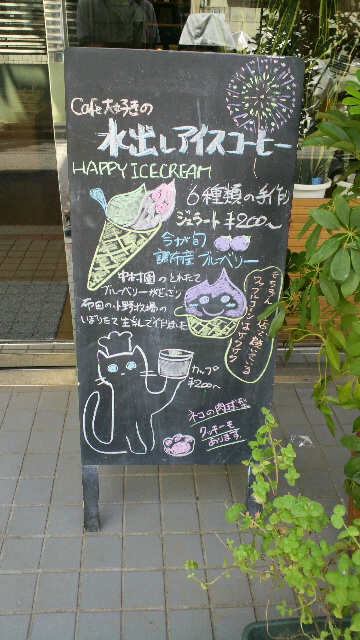 Cafe大好きの
水出しアイスコーヒー
HAPPY ICECREAM
6種類の手作り
ジェラート ¥200~
今が旬
調布産ブルーベリー
中村園のとれたて
ブルーベリーがどっさり
布田の小野牧場の
しぼりたて生乳で作りました
もちろん
ワッフルコーンは
カップ
¥200~
ネコの肉球型
クッキーも
あります